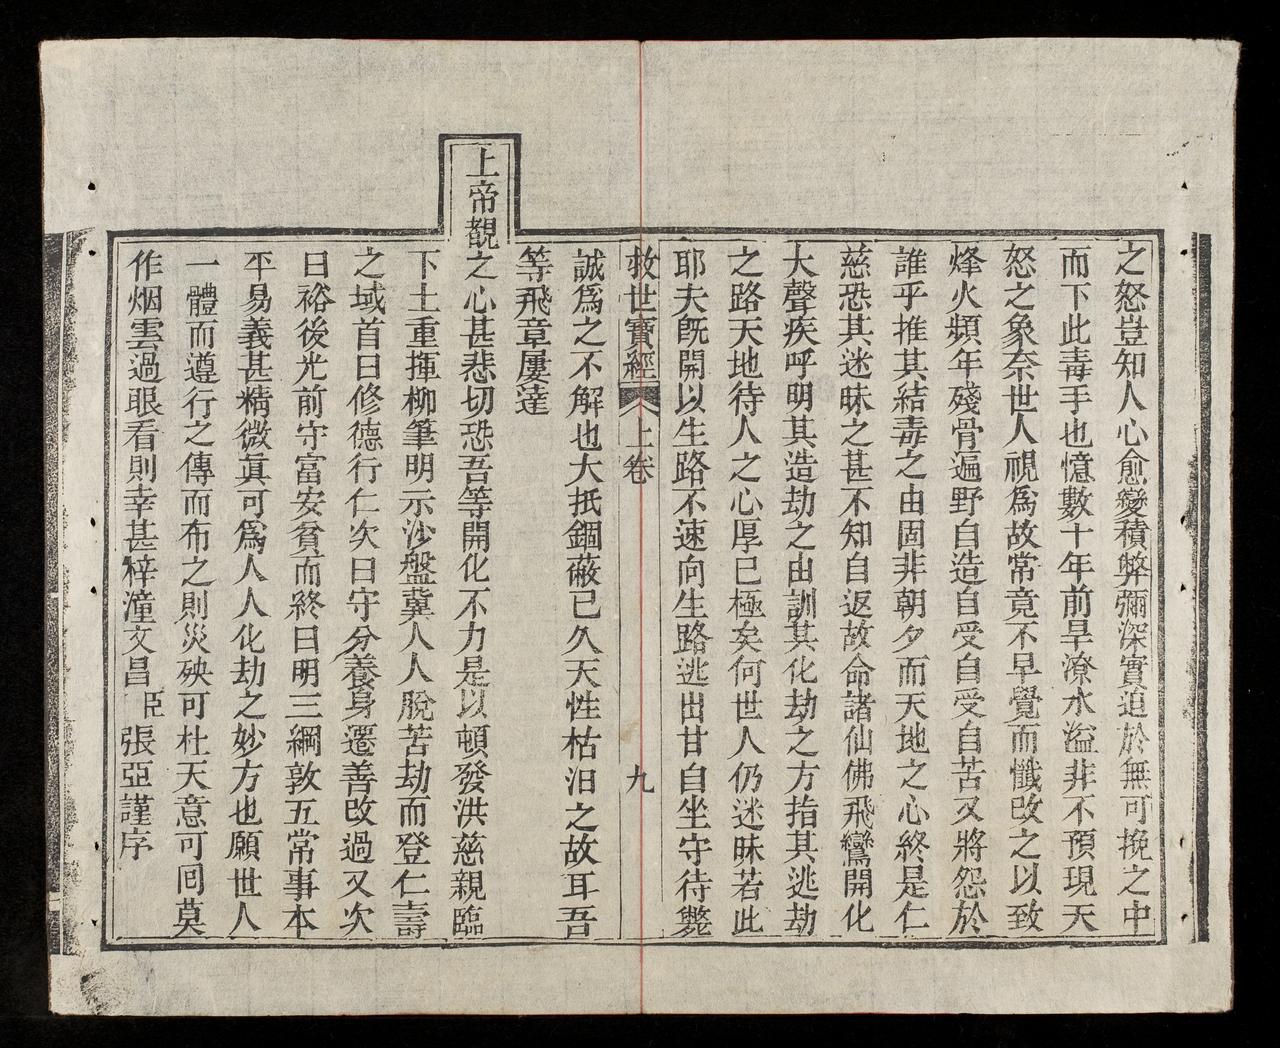 之怒豈知人心愈變積弊彌深實迫於無可挽之中
而下此毒手也憶數十年前旱潦水溢非不預現天
怒之象奈世人視爲故常竟不早覺而懺改之以致
烽火頻年殘骨遍野自造自受自受自苦又將怨於
誰乎推其結毒之由固非朝夕而天地之心終是仁
慈恐其迷昧之甚不知自返故命諸仙佛飛鸞開化
大聲疾呼明其造劫之由訓其化劫之方指其逃劫
之路天地待人之心厚已極矣何世人仍迷昧若此
耶夫旣開以生路不速向生路逃出甘自坐守待斃
救世寶經 上卷 九
誠爲之不解也大抵錮蔽已久天性枯汨之故耳吾
等飛章屢達
上帝覩之心甚悲切恐吾等開化不力是以頓發洪慈親臨
下土重揮柳筆明示沙盤冀人人脫苦劫而登仁壽
之域首曰修德行仁次曰守分養身遷善改過又次
曰裕後光前守富安貧而終曰明三綱敦五常事本
平易義甚精微眞可爲人人化劫之妙方也願世人
一體而遵行之傳而布之則災殃可杜天意可囘莫
作烟雲過眼看則幸甚梓潼文昌臣張亞謹序